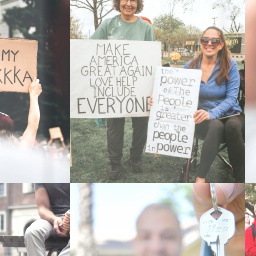 MY
KKKA
MAKE
AMERICA
GREAT AGAIN
LOVE HELP
INCLUDE
EVERYONE
the
power
of The
People
is
greater
than the
people
in power